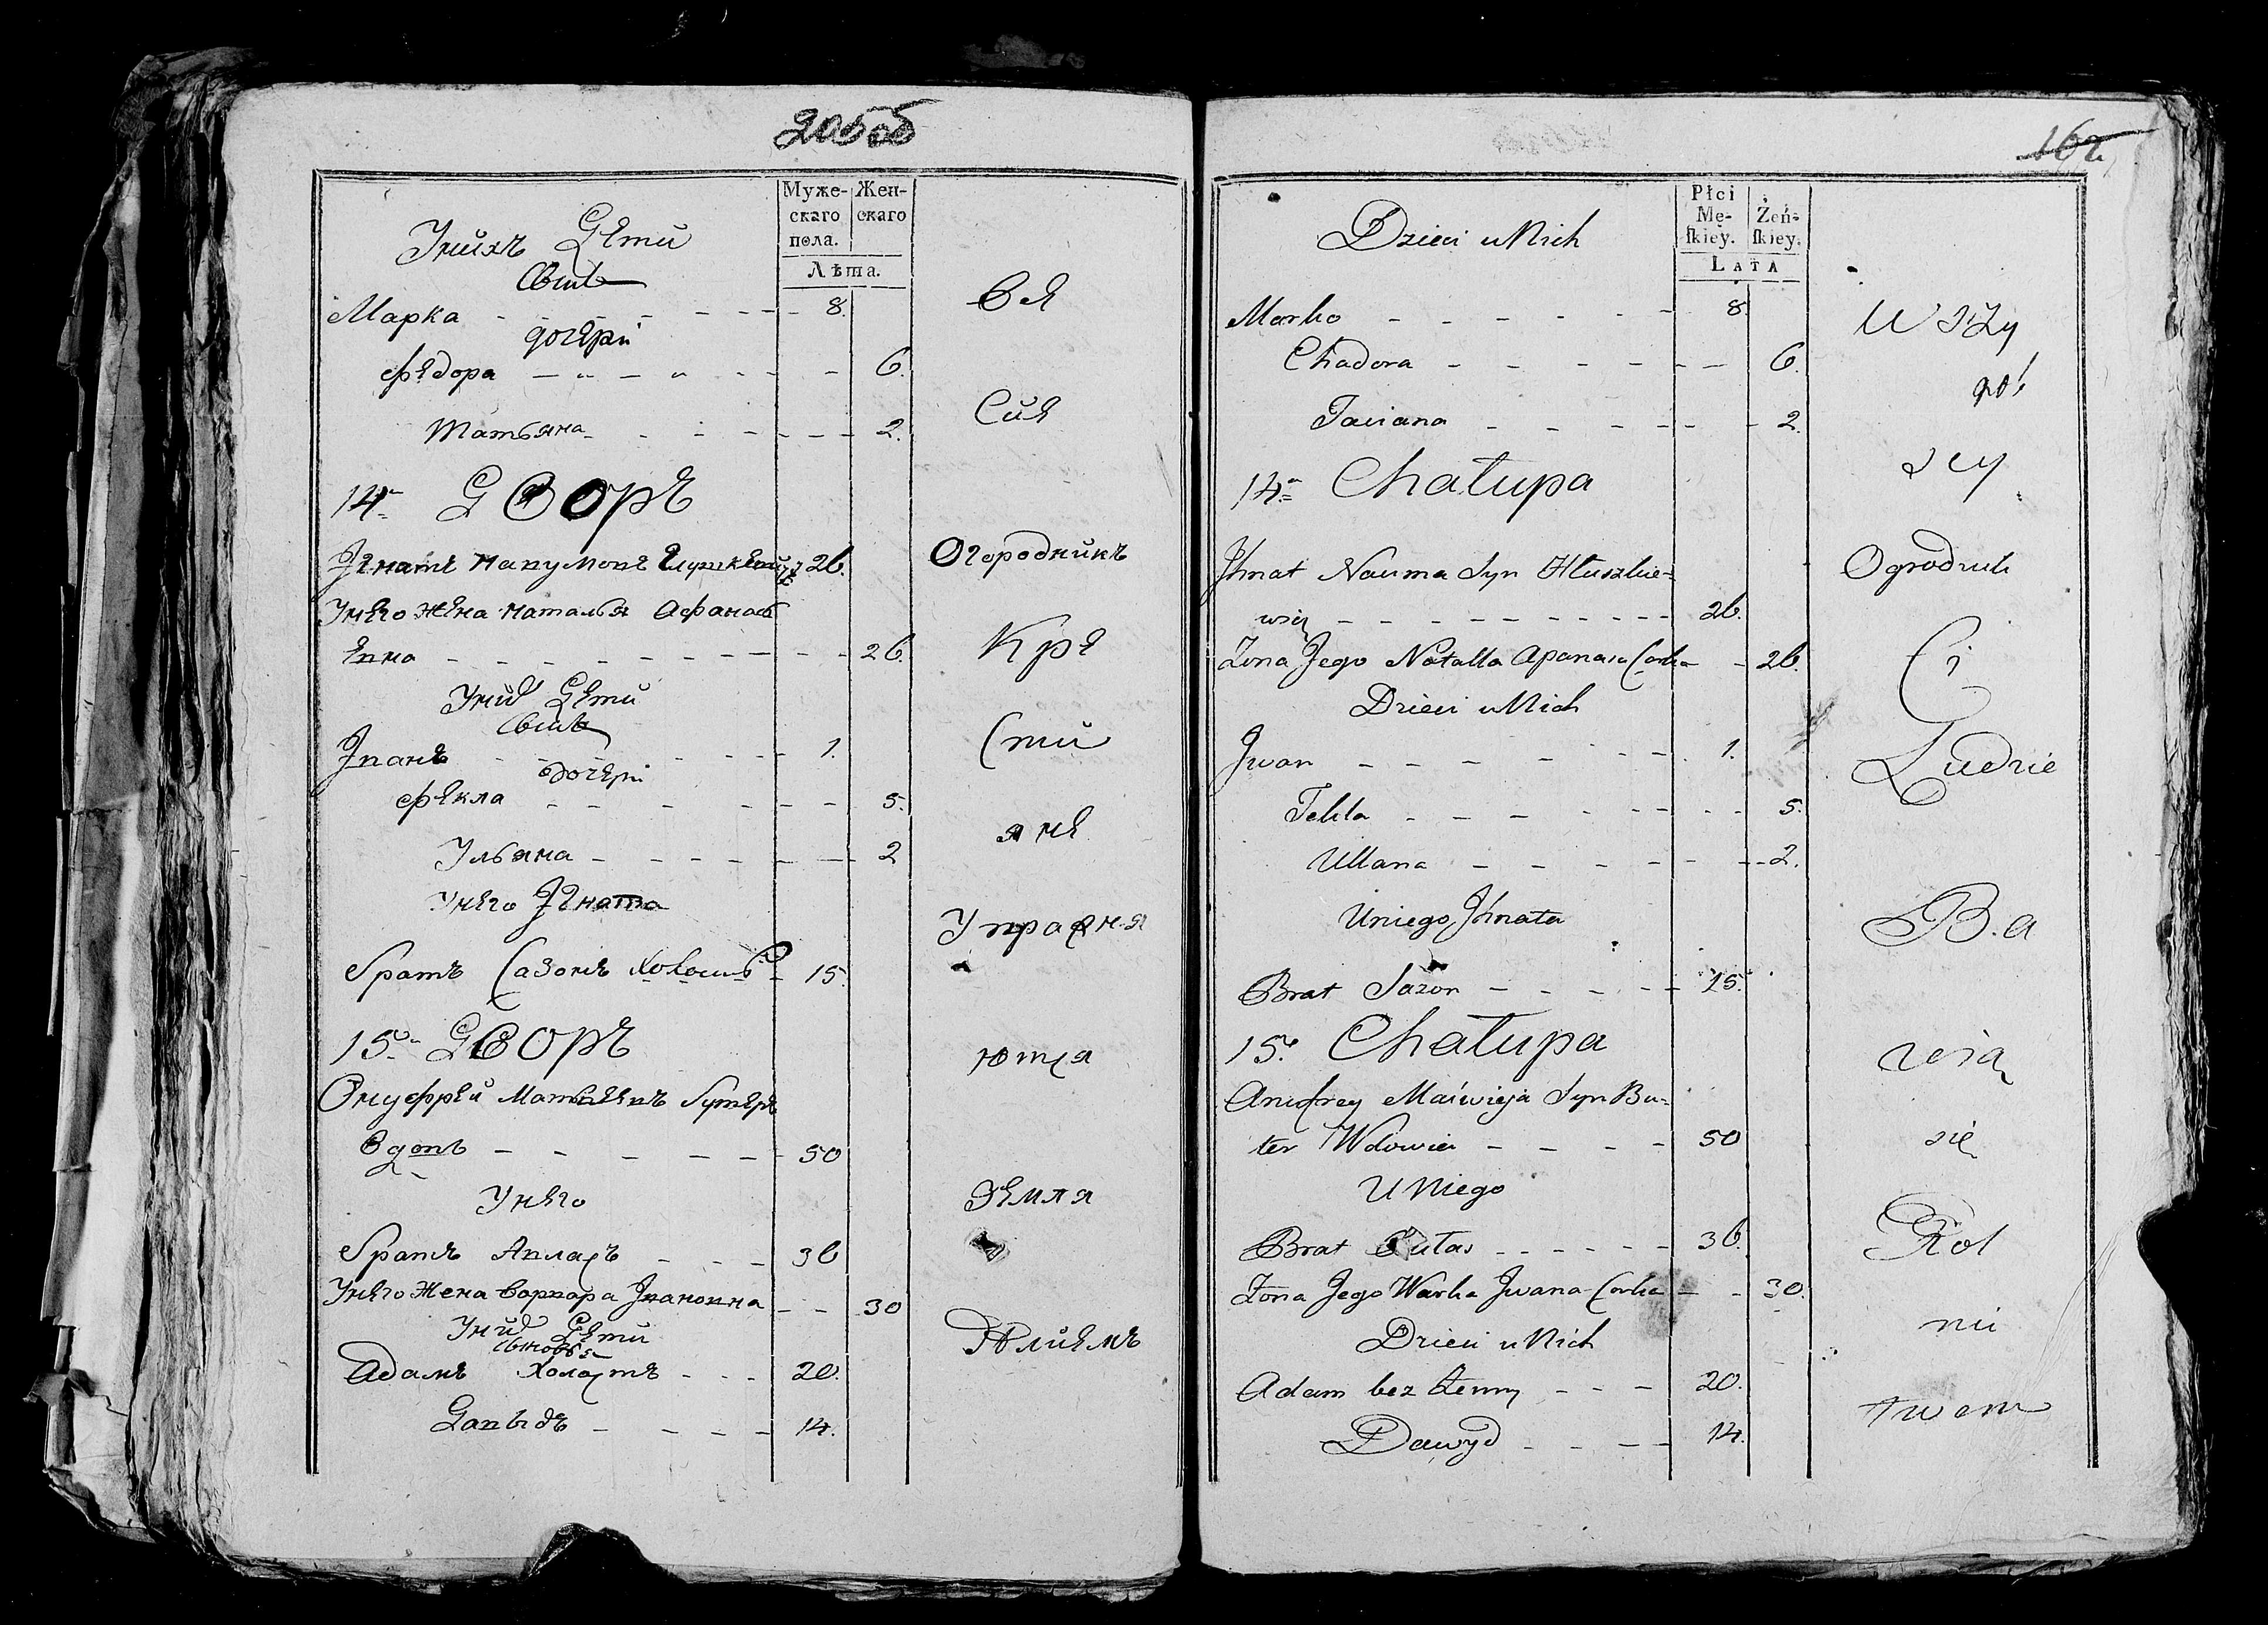 205об
Муже- Жен-
скаго скаго
пола.
Лѣта.
Унихъ Дети
Марка 8.
дочери
Федора 6.
Татьяна 2.
14 Дворъ
Игнатъ Наумовъ 26.
Унего жена Наталья Афанась
евна 26.
Уних Дети
Иванъ 1.
дочери
Фекла 5.
Ульяна 2
Унего Игната
Братъ Сазонъ холость 15.
15 Дворъ
Онуфрей Матвеевъ Бутеръ
Вдовъ 50
Унего
Братъ Авласъ 36
Унего Жена Варвара Ивановна 30
Уних Дети
сыновья
Адамъ Холостъ 20.
Давыдъ 14.
Вся
Сия
Огородникъ
Кре
сти
яне
Упражня
ются
Земля
делиемъ
162
Płci
Mę- Żeń-
skiey. skiey.
LATA
Dzieci u Nich
Marko 8
Chadora 6.
Taciana 2.
14. Chałupa
Ihnat Nauma Syn Hłuszkie-
wicz 26.
Żona Jego Natalla Apanasa Corka 26.
Dzieci u Nich
Jwan 1.
Tekla 5.
Ullana 2.
U niego Ihnata
Brat Sazon 15.
15. Chałupa
Anufrey Maćwieja Syn Bu-
ter Wdowiec 50
U Niego
Brat 36.
Żona Jego Warka Jwana Corka 30.
Dzieci u Nich
Adam bez Żenny 20.
Dawyd 14.
Wszy
scy
Ogrodnik
Ci
Ludzie
Ba
wią
się
Rol
nic
twem